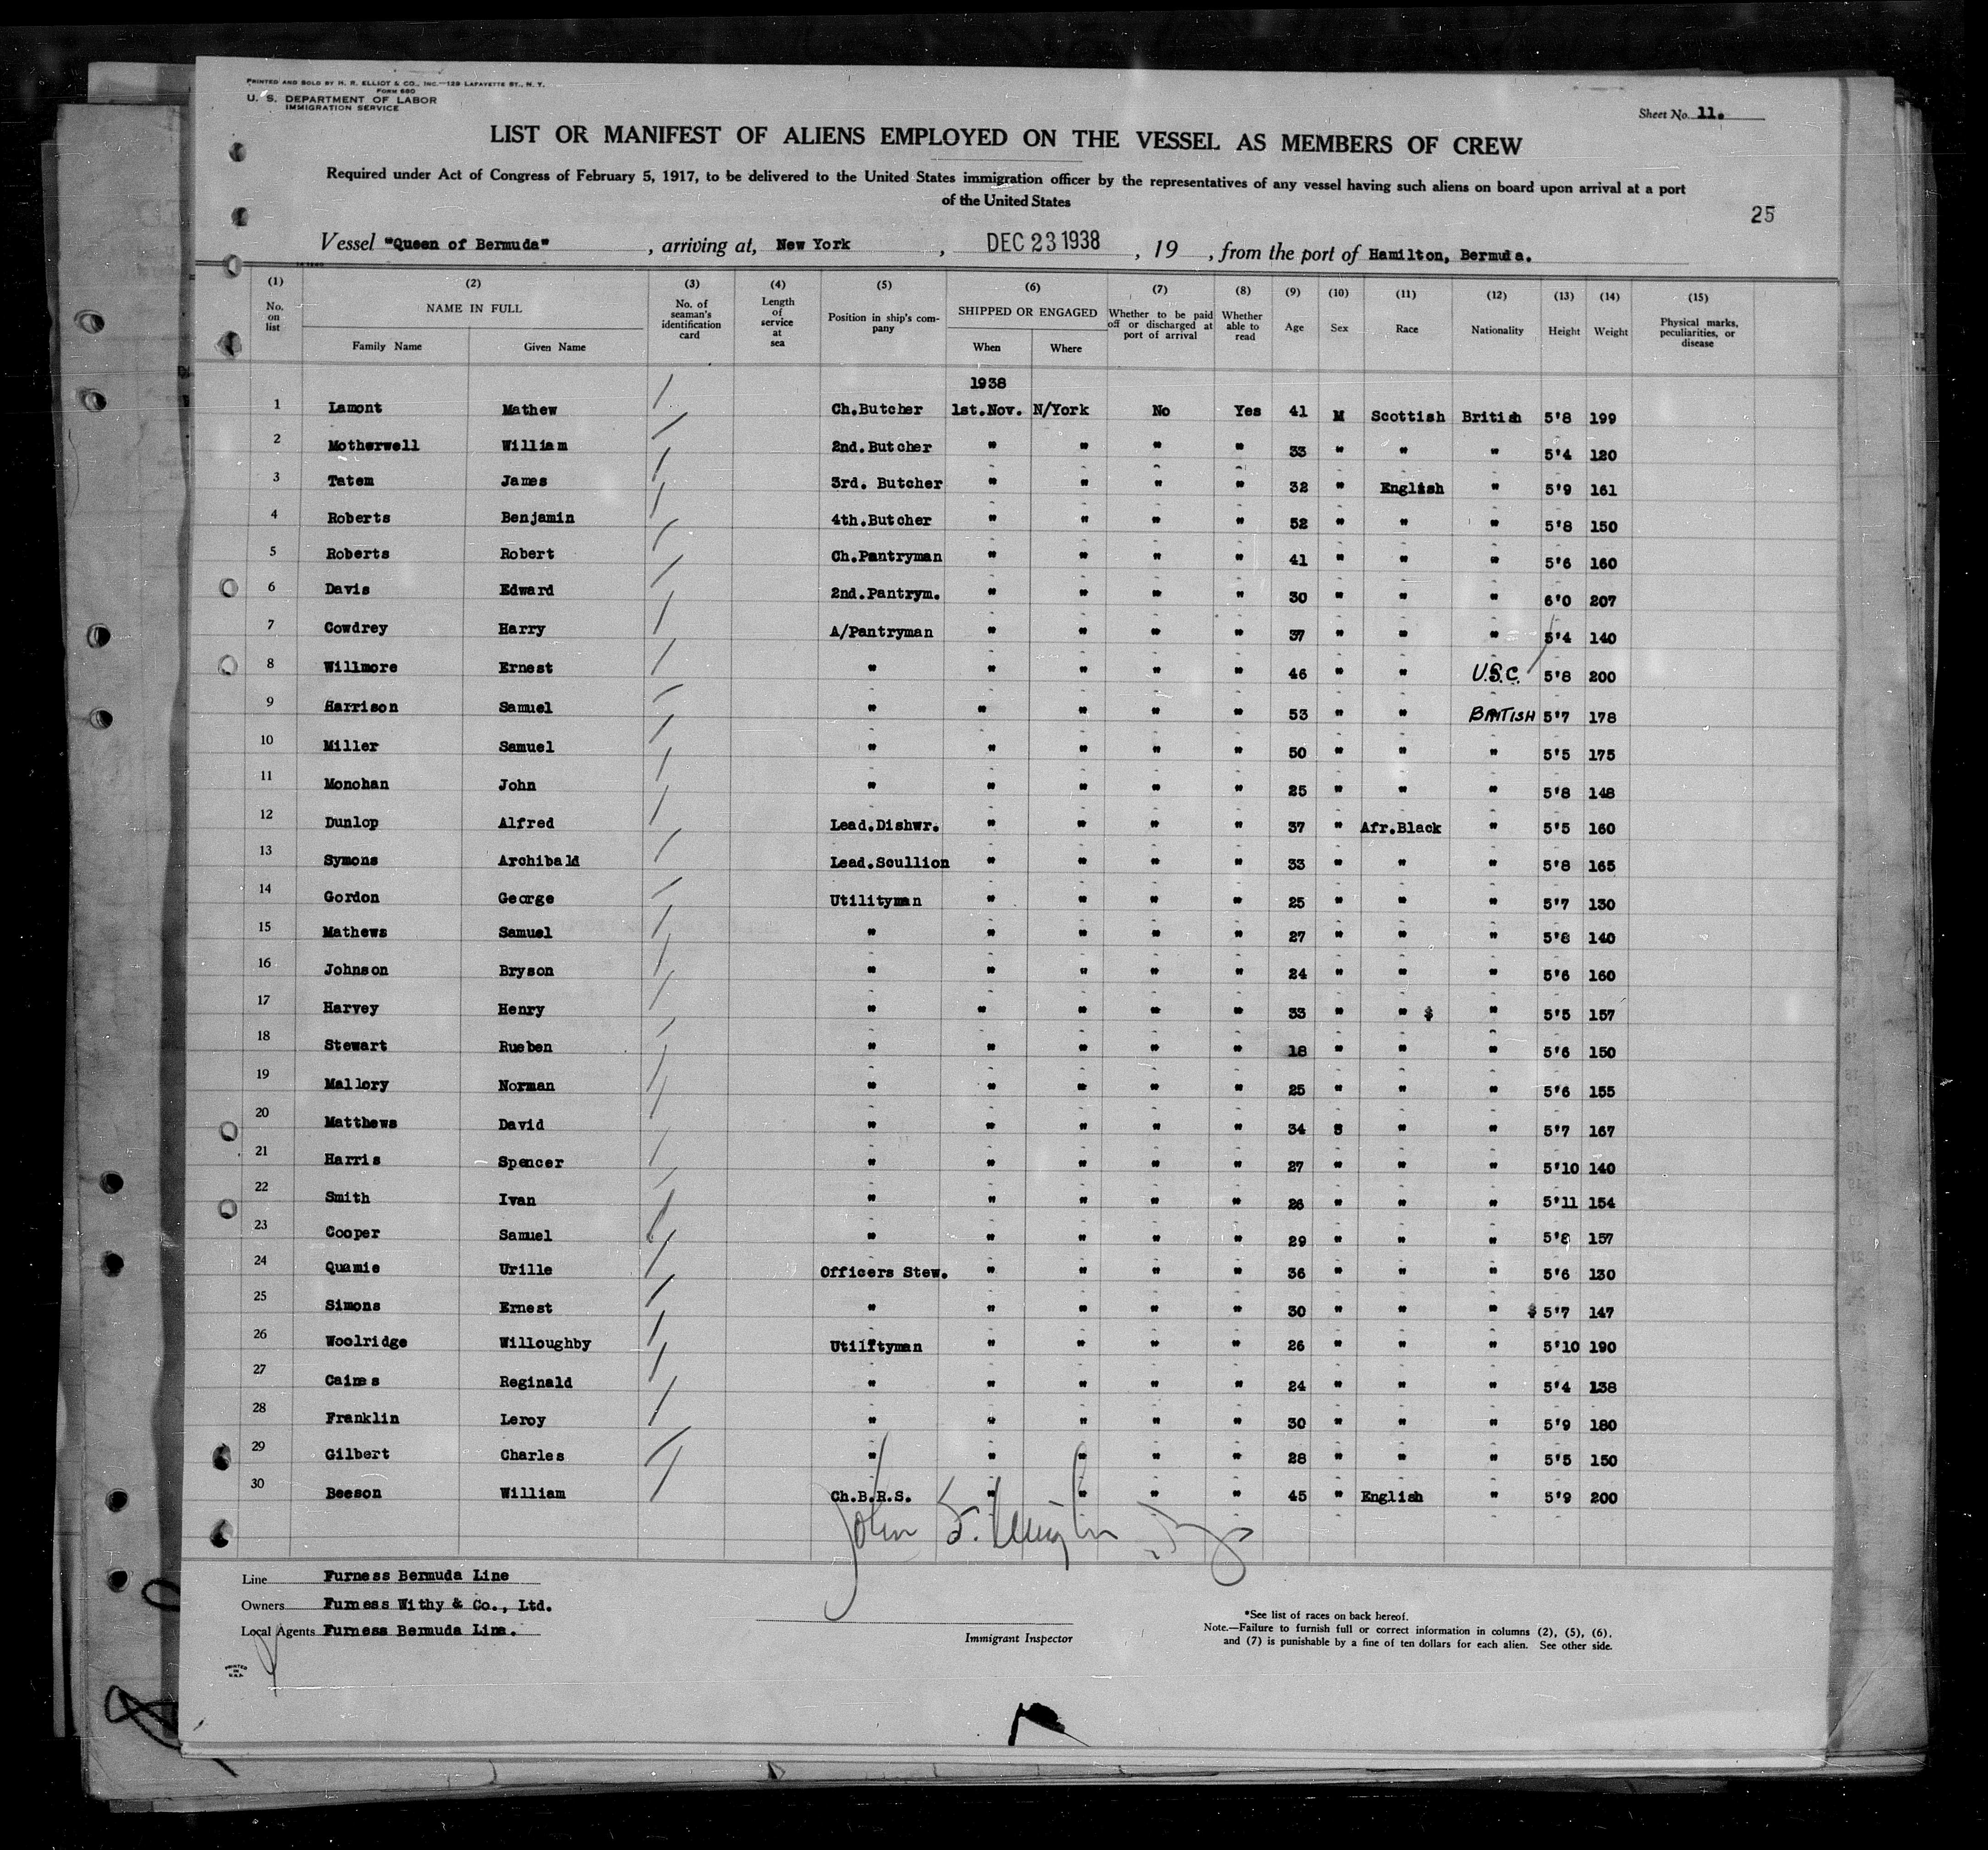 PRINTED AND SOLD BY H. R. ELLIOT & CO., INC.—129 LAFAYETTE ST., N. Y.
FORM 680
U. S. DEPARTMENT OF LABOR
IMMIGRATION SERVICE
Sheet No. 11.
LIST OR MANIFEST OF ALIENS EMPLOYED ON THE VESSEL AS MEMBERS OF CREW
Required under Act of Congress of February 5, 1917, to be delivered to the United States immigration officer by the representatives of any vessel having such aliens on board upon arrival at a port
of the United States
25
Vessel "Queen of Bermuda", arriving at, New York, DEC 23 1938, 19 , from the port of Hamilton, Bermuda.
(1) (2) (3) (4) (5) (6) (7) (8) (9) (10) (11) (12) (13) (14) (15)
No. on list NAME IN FULL Family Name Given Name No. of seaman's identification card Length of service at sea Position in ship's company SHIPPED OR ENGAGED When Where Whether to be paid off or discharged at port of arrival Whether able to read Age Sex Race Nationality Height Weight Physical marks, peculiarities, or disease
1938
1 Lamont Mathew Ch.Butcher 1st.Nov. N/York No Yes 41 M Scottish British 5'8 199
2 Motherwell William 2nd.Butcher " " " " 33 " " " 5'4 120
3 Tatem James 3rd. Butcher " " " " 32 " English " 5'9 161
4 Roberts Benjamin 4th.Butcher " " " " 52 " " " 5'8 150
5 Roberts Robert Ch.Pantryman " " " " 41 " " " 5'6 160
6 Davis Edward 2nd.Pantrym. " " " " 30 " " " 6'0 207
7 Cowdrey Harry A/Pantryman " " " " 37 " " " 5'4 140
8 Willmore Ernest " " " " " 46 " " U.S.C. 5'8 200
9 Harrison Samuel " " " " " 53 " " BRITISH 5'7 178
10 Miller Samuel " " " " " 50 " " " 5'5 175
11 Monohan John " " " " " 25 " " " 5'8 148
12 Dunlop Alfred Lead.Dishwr. " " " " 37 " Afr.Black " 5'5 160
13 Symons Archibald Lead.Scullion " " " " 33 " " " 5'8 165
14 Gordon George Utilityman " " " " 25 " " " 5'7 130
15 Mathews Samuel " " " " " 27 " " " 5'8 140
16 Johnson Bryson " " " " " 24 " " " 5'6 160
17 Harvey Henry " " " " " 33 " " $ " 5'5 157
18 Stewart Rueben " " " " " 18 " " " 5'6 150
19 Mallory Norman " " " " " 25 " " " 5'6 155
20 Matthews David " " " " " 34 8 " " 5'7 167
21 Harris Spencer " " " " " 27 " " " 5'10 140
22 Smith Ivan " " " " " 26 " " " 5'11 154
23 Cooper Samuel " " " " " 29 " " " 5'8 157
24 Quamie Urille Officers Stew. " " " " 36 " " " 5'6 130
25 Simons Ernest " " " " " 30 " " " $ 5'7 147
26 Woolridge Willoughby Utilityman " " " " 26 " " " 5'10 190
27 Caines Reginald " " " " " 24 " " " 5'4 138
28 Franklin Leroy " " " " " 30 " " " 5'9 180
29 Gilbert Charles " " " " " 28 " " " 5'5 150
30 Beeson William Ch.B.R.S. " " " " 45 " English " 5'9 200
John
Line Furness Bermuda Line
Owners Furness Withy & Co., Ltd.
Local Agents Furness Bermuda Line.
Immigrant Inspector
*See list of races on back hereof.
Note.—Failure to furnish full or correct information in columns (2), (5), (6),
and (7) is punishable by a fine of ten dollars for each alien. See other side.
PRINTED
IN
U.S.A.